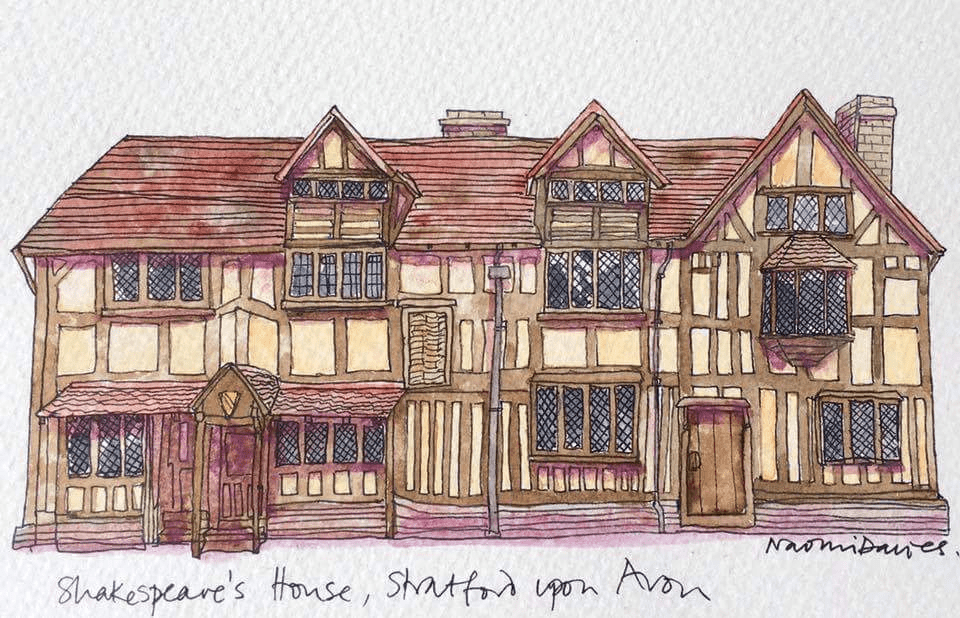 Naomi Davies.
Shakespeare's House, Stratford upon Avon